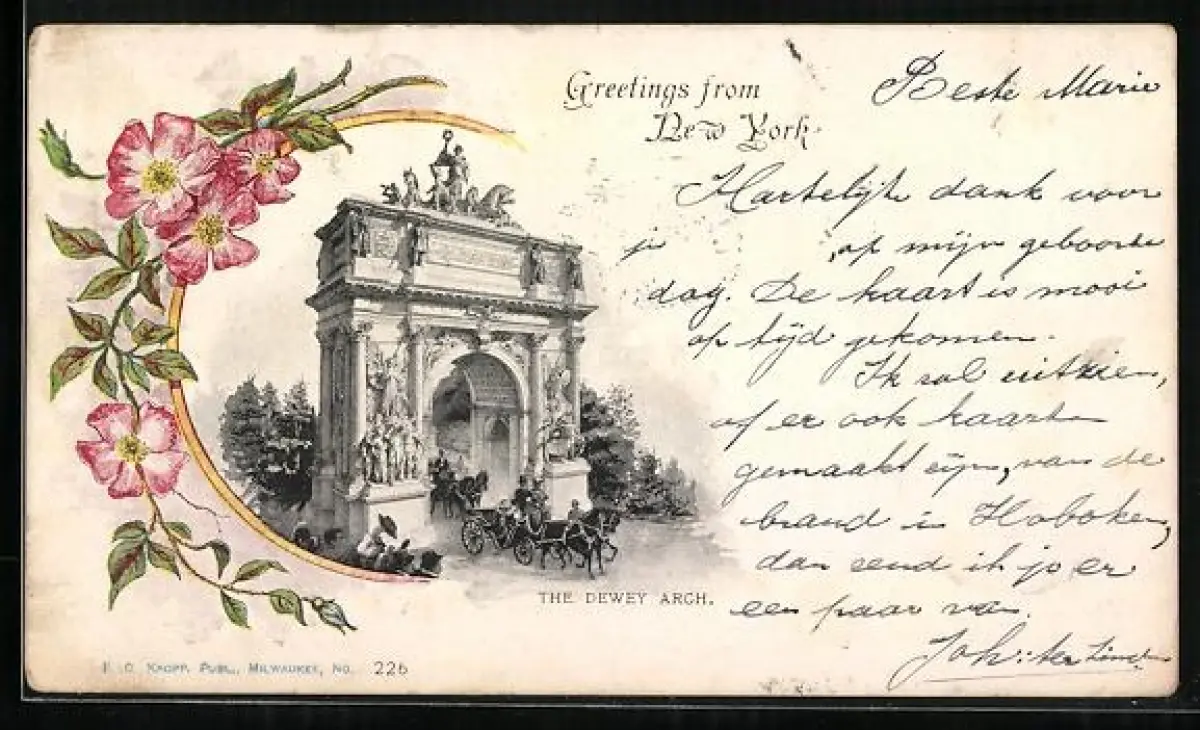 Greetings from
New York.
Beste Marie
Hartelijk dank voor
je op mijn geboorte
dag. De kaart is mooi
op tijd gekomen.
Ik sal uitzien,
of er ook kaarten
gemaakt zijn, van de
brand in Hoboken,
dan zend ik je er
een paar van.
Joh: ter
THE DEWEY ARCH.
KROPP, PUBL., MILWAUKEE, NO. 226